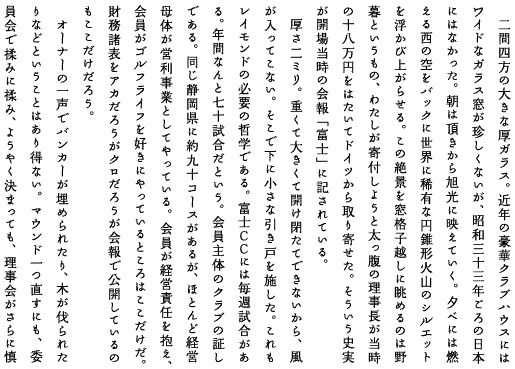 二間四方の大きな厚ガラス。近年の豪華クラブハウスには
ワイドなガラス窓が珍しくないが、昭和三十三年ごろの日本
にはなかった。朝は頂きから旭光に映えていく。夕べには燃
える西の空をバックに世界に稀有な円錐形火山のシルエット
を浮かび上がらせる。この絶景を窓格子越しに眺めるのは野
暮というもの、わたしが寄付しようと太っ腹の理事長が当時
の十八万円をはたいてドイツから取り寄せた。そういう史実
が開場当時の会報「富士」に記されている。
　厚さ二ミリ。重くて大きくて開け閉たてできないから、風
が入ってこない。そこで下に小さな引き戸を施した。これも
レイモンドの必要の哲学である。富士ＣＣには毎週試合があ
る。年間なんと七十試合だという。会員主体のクラブの証し
である。同じ静岡県に約九十コースがあるが、ほとんど経営
母体が営利事業としてやっている。会員が経営責任を抱え、
会員がゴルフライフを好きにやっているところはここだけだ。
財務諸表をアカだろうがクロだろうが会報で公開しているの
もここだけだろう。
　オーナーの一声でバンカーが埋められたり、木が伐られた
りなどということはあり得ない。マウンド一つ直すにも、委
員会で揉みに揉み、ようやく決まっても、理事会がさらに慎